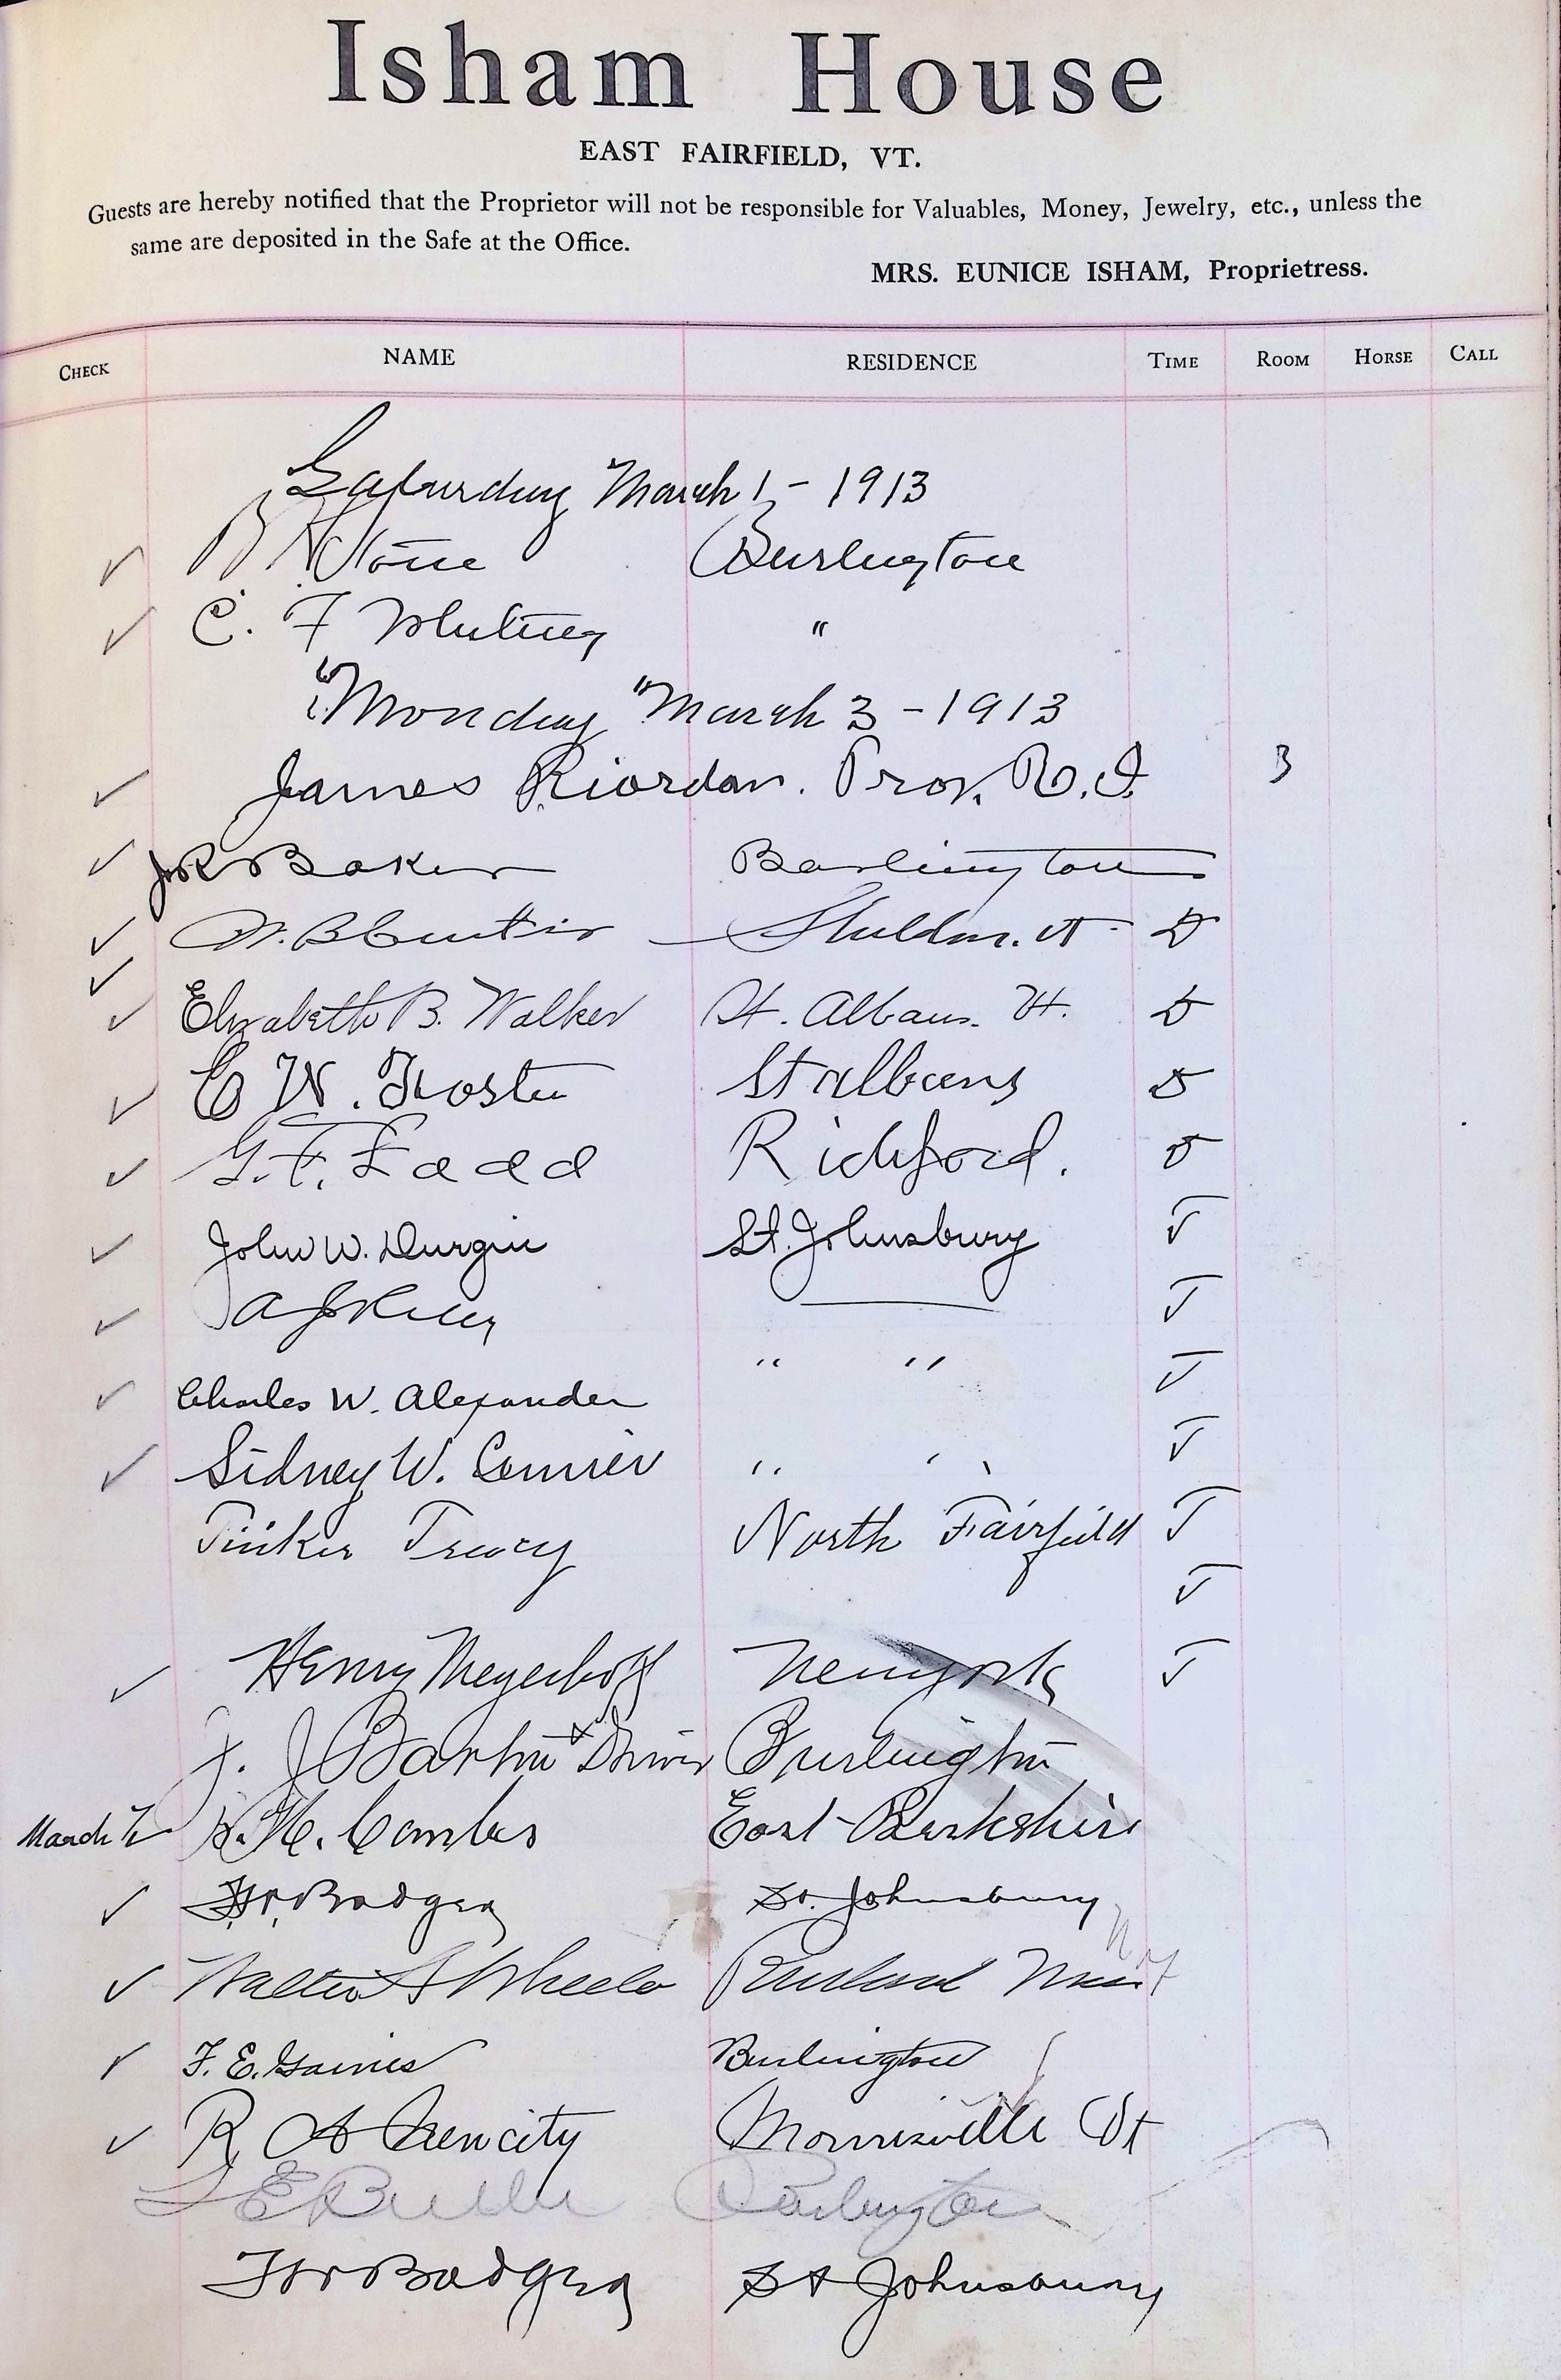 Isham House
EAST FAIRFIELD, VT.
Guests are hereby notified that the Proprietor will not be responsible for Valuables, Money, Jewelry, etc., unless the
same are deposited in the Safe at the Office.
MRS. EUNICE ISHAM, Proprietress.
CHECK NAME RESIDENCE TIME ROOM HORSE CALL
Saturday March 1 - 1913
✓ Stone Burlington
✓ C. F Whitney "
"Monday "March 3 - 1913
✓ James Riordan. Prov. R.I. 3
✓ J R Baker Burlington
✓ Sheldon. Vt D
✓
✓ Elizabeth B. Walker St. Albans. Vt. D
✓ E W. Foster St albans D
✓ G. F. Ladd Richford. D
✓ John W. Durgin St. Johnsbury T
✓ A J T
✓ Charles W. Alexander " " T
✓ Sidney W. " " T
Tinker Tracy North Fairfield T
T
✓ Henry Meyerhoff New York T
J. J Bartin & Driver Burlington
March 7 H. Combs East Berkshire
✓ F. W. Badger St. Johnsbury
✓ Walter S Wheeler Rutland
✓ F. E. Gaines Burlington
✓ R A Morrisville Vt
Burlington
F W Badger St Johnsbury